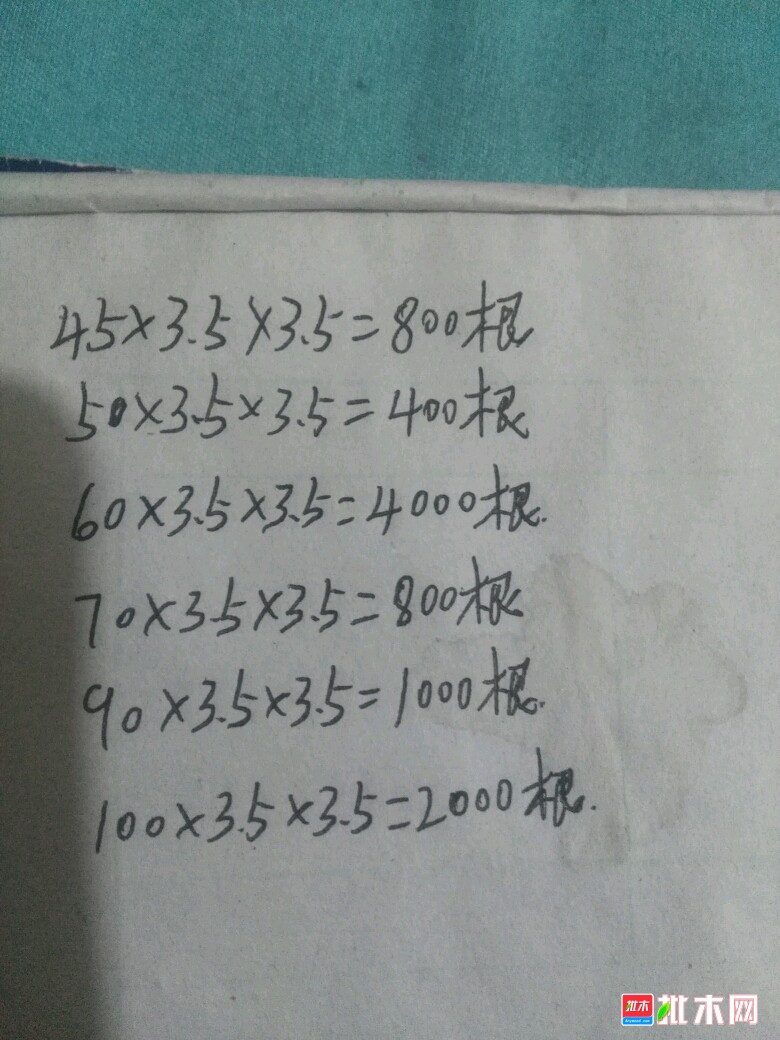 45×3.5×3.5=800根
50×3.5×3.5=400根
60×3.5×3.5=4000根.
70×3.5×3.5=800根
90×3.5×3.5=1000根.
100×3.5×3.5=2000根.
批木 批木网